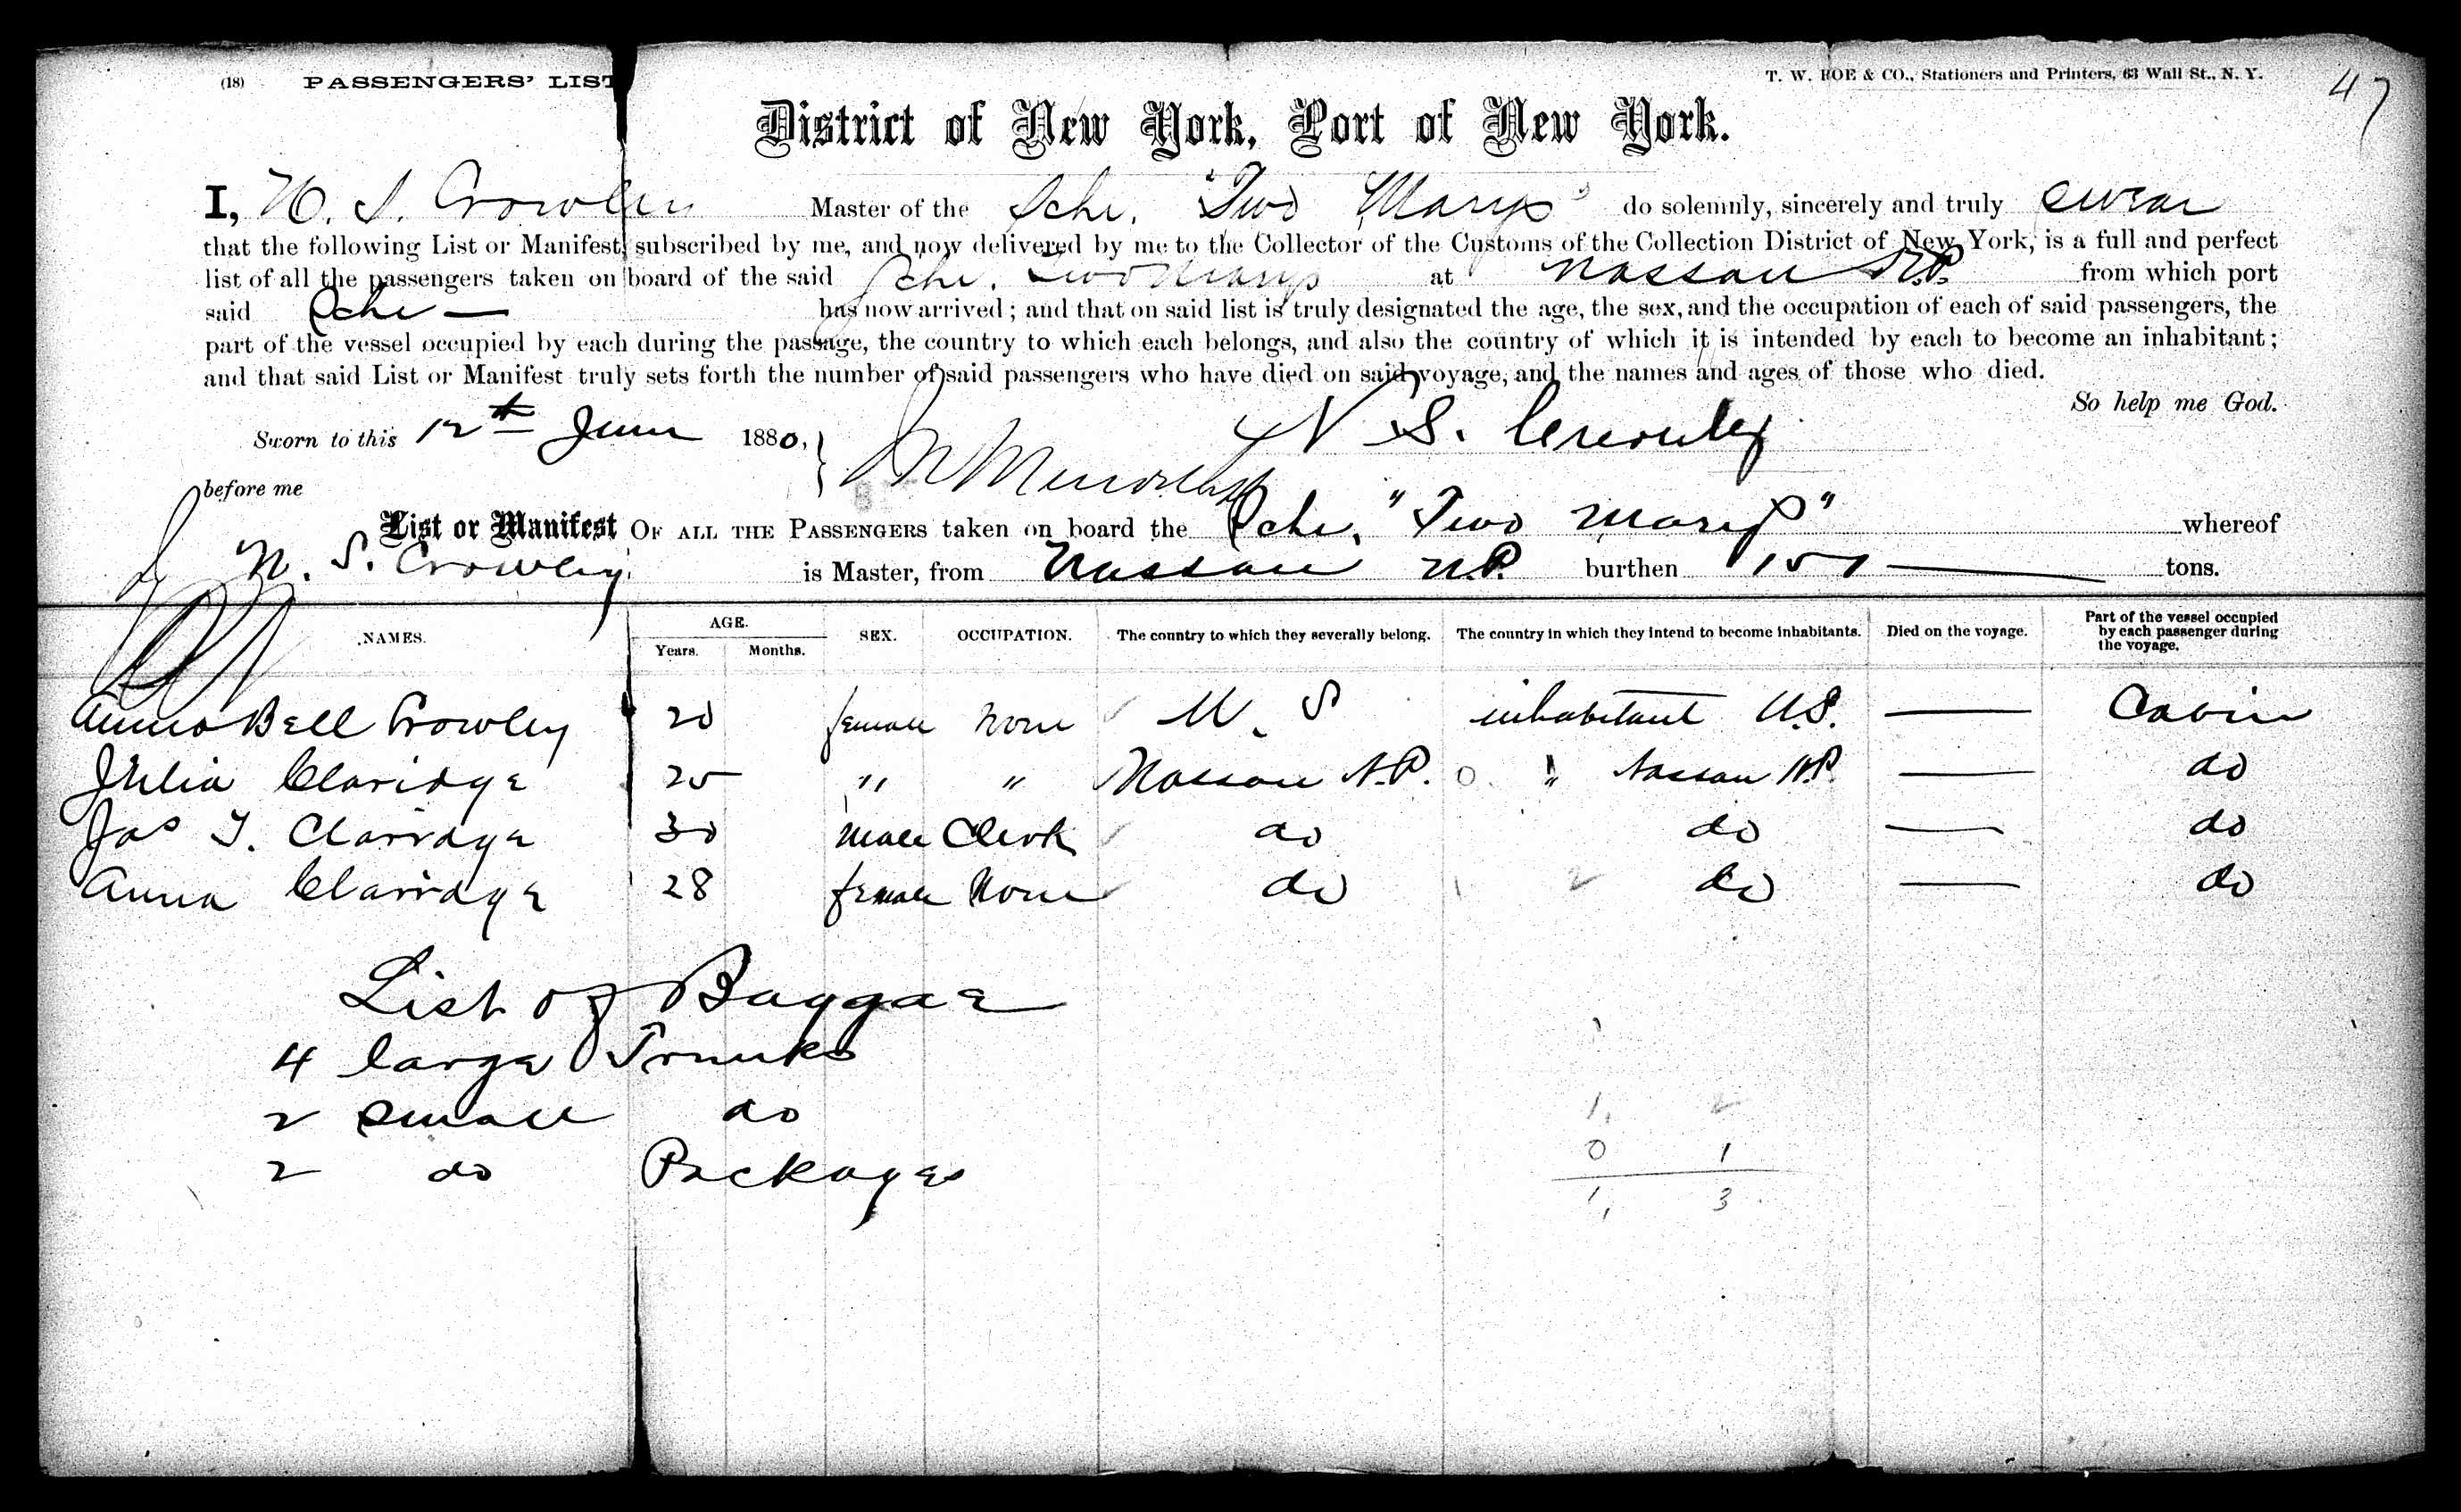 (18) PASSENGERS' LIST
T. W. ROE & CO., Stationers and Printers, 63 Wall St., N. Y.
47
District of New York, Port of New York.
I, N. S. Crowley Master of the Schr. "Two Marys" do solemnly, sincerely and truly swear
that the following List or Manifest, subscribed by me, and now delivered by me to the Collector of the Customs of the Collection District of New York, is a full and perfect
list of all the passengers taken on board of the said Schr. Two Marys at Nassau N.P. from which port
said Schr — has now arrived; and that on said list is truly designated the age, the sex, and the occupation of each of said passengers, the
part of the vessel occupied by each during the passage, the country to which each belongs, and also the country of which it is intended by each to become an inhabitant;
and that said List or Manifest truly sets forth the number of said passengers who have died on said voyage, and the names and ages of those who died.
So help me God.
Sworn to this 12th June 1880, N S. Crowley
before me
List or Manifest OF ALL THE PASSENGERS taken on board the Schr. "Two Marys" whereof
N. S. Crowley is Master, from Nassau N.P. burthen 151 — tons.
NAMES. AGE. Years. Months. SEX. OCCUPATION. The country to which they severally belong. The country in which they intend to become inhabitants. Died on the voyage. Part of the vessel occupied by each passenger during the voyage.
Bell Crowley 20 female None U. S inhabitant U.S. — Cabin
Julia Claridge 25 " " Nassau N.P. 0 " Nassau N.P. — do
Jas T. Clarridge 30 male Clerk do do — do
Anna Clarridge 28 female None do 1 2 do — do
List of Baggage
4 large Trunks
2 small do
2 do Packages
1, 2
0 1
1, 3